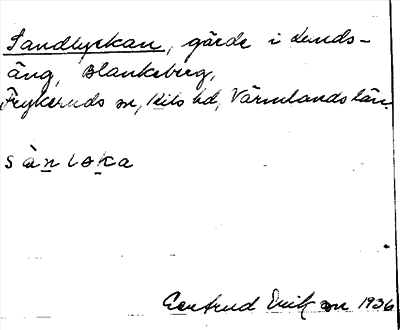 Sandlyckan, gärde i Lunds-
äng, Blankeberg,
Frykeruds sn, Kils hd, Värmlands län.
sànlɵka
Gertrud Eriksson 1936